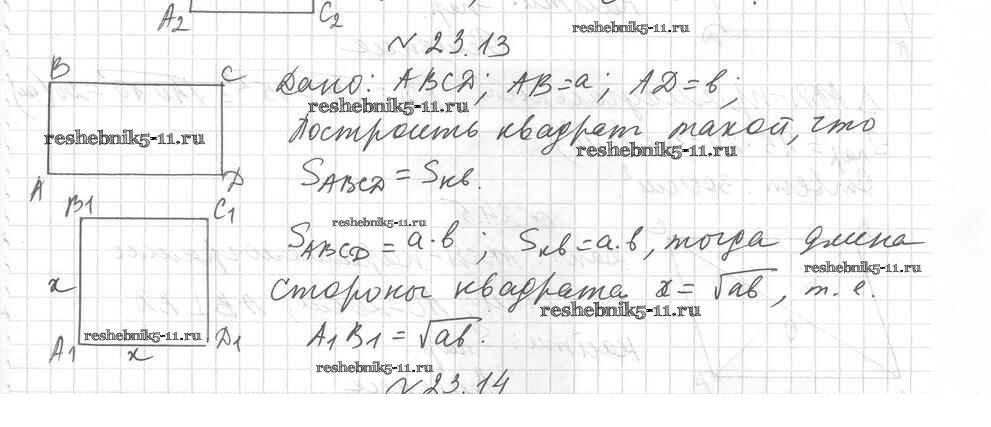 A2 C2
reshebnik5-11.ru
№ 23.13
B C
Дано: ABCD; AB=a; AD=в;
reshebnik5-11.ru
reshebnik5-11.ru
Построить квадрат такой, что
reshebnik5-11.ru
A D
S ABCD = S кв.
B1 C1
reshebnik5-11.ru
S ABCD = a·в ; S кв = a·в, тогда длина
reshebnik5-11.ru
x
стороны квадрата x = √ав, т.е.
reshebnik5-11.ru
reshebnik5-11.ru
A1 x D1
A1B1 = √ав.
reshebnik5-11.ru
№ 23.14